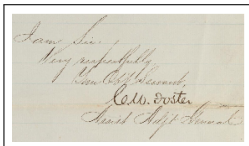 I am Sir,
Very respectfully,
Your Obt Servant,
C.W. Foster
Assist Adjt General